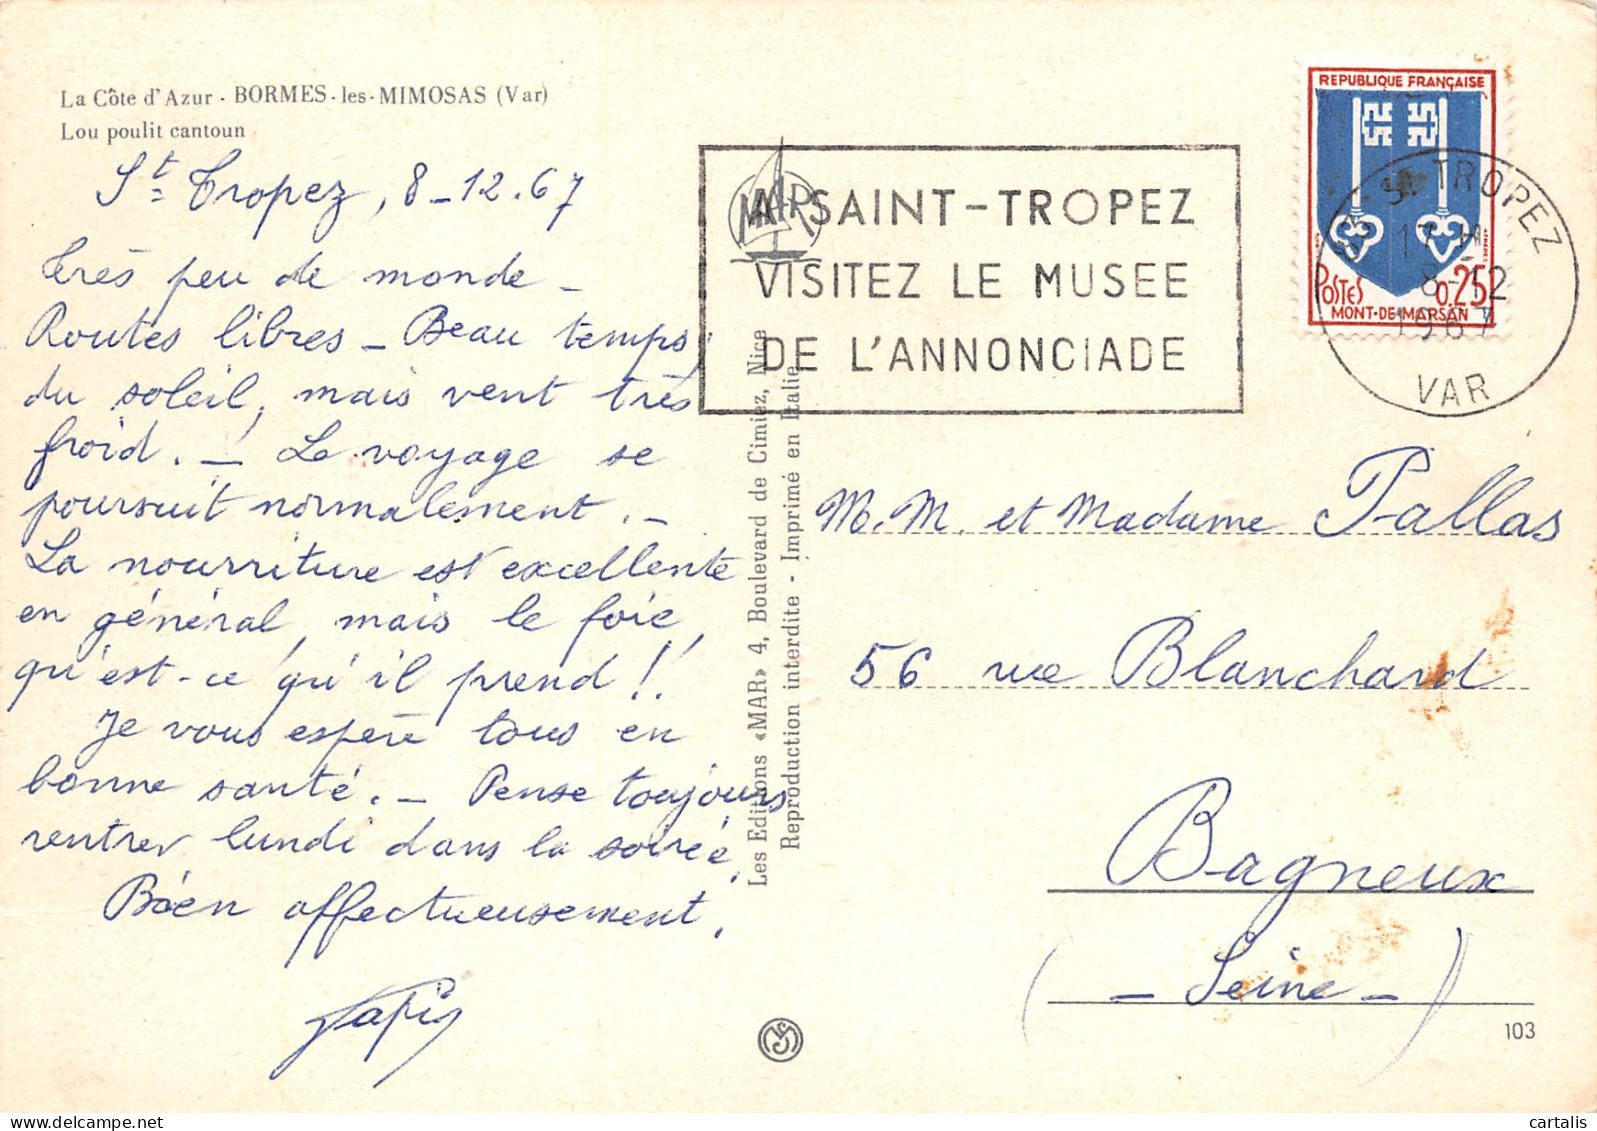 La Côte d'Azur - BORMES-les-MIMOSAS (Var)
Lou poulit cantoun
St Tropez, 8-12.67
Très peu de monde -
Routes libres - Beau temps,
du soleil, mais vent très
froid. - Le voyage se
poursuit normalement. -
La nourriture est excellente
en général, mais le foie,
qu'est-ce qu'il prend !.
Je vous espère tous en
bonne santé. - Pense toujours
rentrer lundi dans la soirée.
Bien affectueusement.
Les Editions «MAR» 4, Boulevard de Cimiez, Nice
Reproduction interdite - Imprimé en Italie
MAR
A SAINT-TROPEZ
VISITEZ LE MUSEE
DE L'ANNONCIADE
REPUBLIQUE FRANÇAISE
POSTES
0.25
MONT-DE-MARSAN
83 ST TROPEZ
17 H
8-12
1967
VAR
M.M. et Madame Pallas
56 rue Blanchard
Bagneux
(- Seine -)
103
cartalis